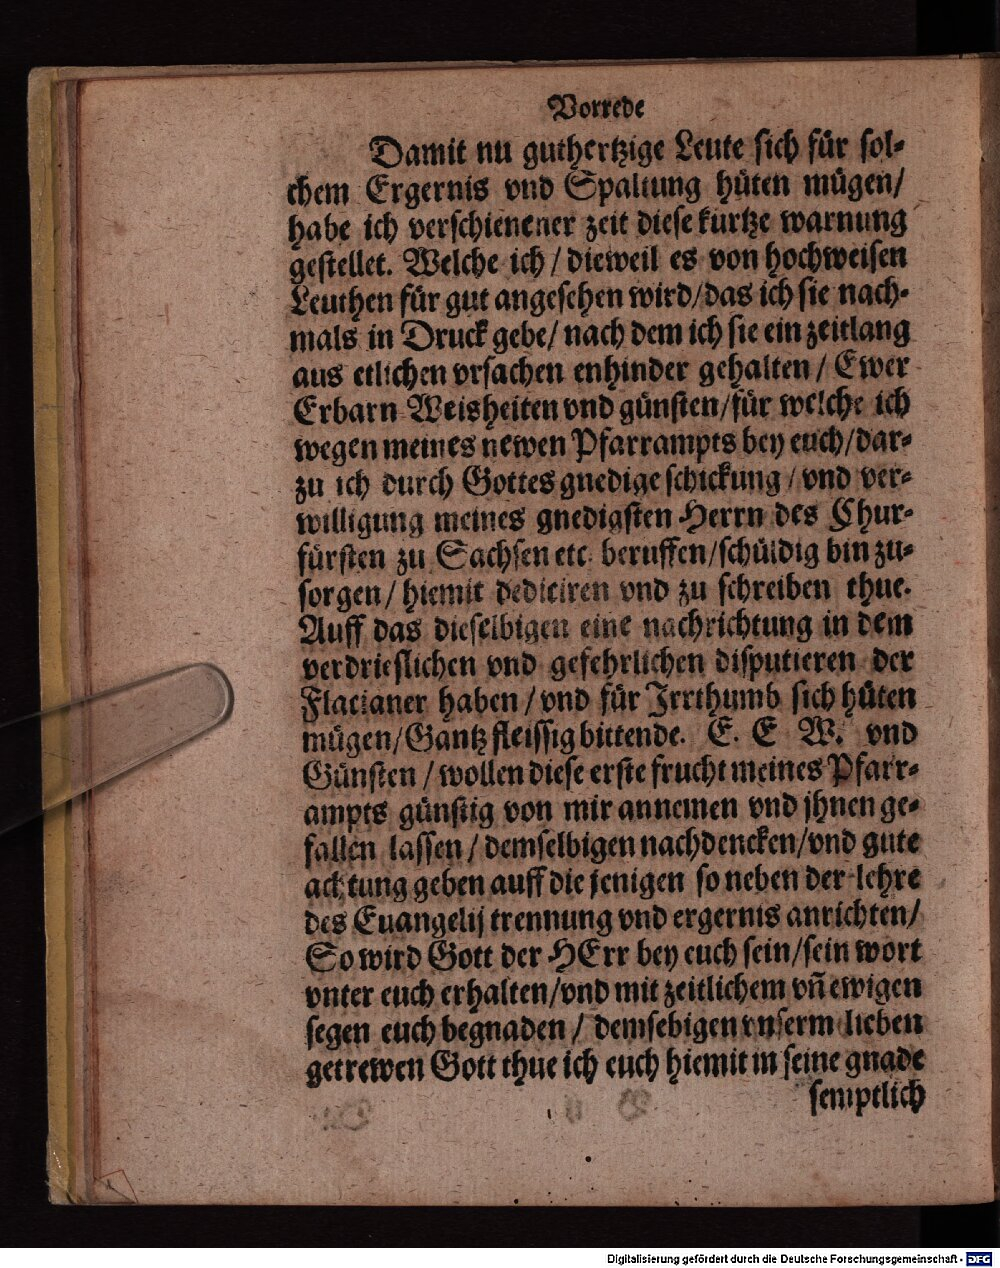 Vorrede
Damit nu guthertzige Leute sich für sol-
chem Ergernis vnd Spaltung hüten mügen/
habe ich verschienener zeit diese kurtze warnung
gestellet. Welche ich / dieweil es von hochweisen
Leuthen für gut angesehen wird/das ich sie nach-
mals in Druck gebe/ nach dem ich sie ein zeitlang
aus etlichen vrsachen enhinder gehalten / Ewer
Erbarn Weisheiten vnd günsten/für welche ich
wegen meines newen Pfarrampts bey euch/dar-
zu ich durch Gottes gnedige schickung / vnd ver-
willigung meines gnedigsten Herrn des Chur-
fürsten zu Sachsen etc. beruffen/schüldig bin zu-
sorgen/ hiemit dediciren vnd zu schreiben thue.
Auff das dieselbigen eine nachrichtung in dem
verdrieslichen vnd gefehrlichen disputieren der
Flacianer haben / vnd für Irrthumb sich hüten
mügen/Gantz fleissig bittende. E. E W. vnd
Günsten / wollen diese erste frucht meines Pfarr-
ampts günstig von mir annemen vnd jhnen ge-
fallen lassen / demselbigen nachdencken/vnd gute
achtung geben auff die jenigen so neben der lehre
des Euangelij trennung vnd ergernis anrichten/
So wird Gott der HErr bey euch sein/sein wort
vnter euch erhalten/vnd mit zeitlichem vn̄ ewigen
segen euch begnaden / demsebigen vnserm lieben
getrewen Gott thue ich euch hiemit in seine gnade
semptlich
Digitalisierung gefördert durch die Deutsche Forschungsgemeinschaft - DFG